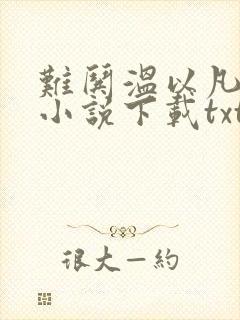 難鬨溫以凡
小說下載txt
很大一約